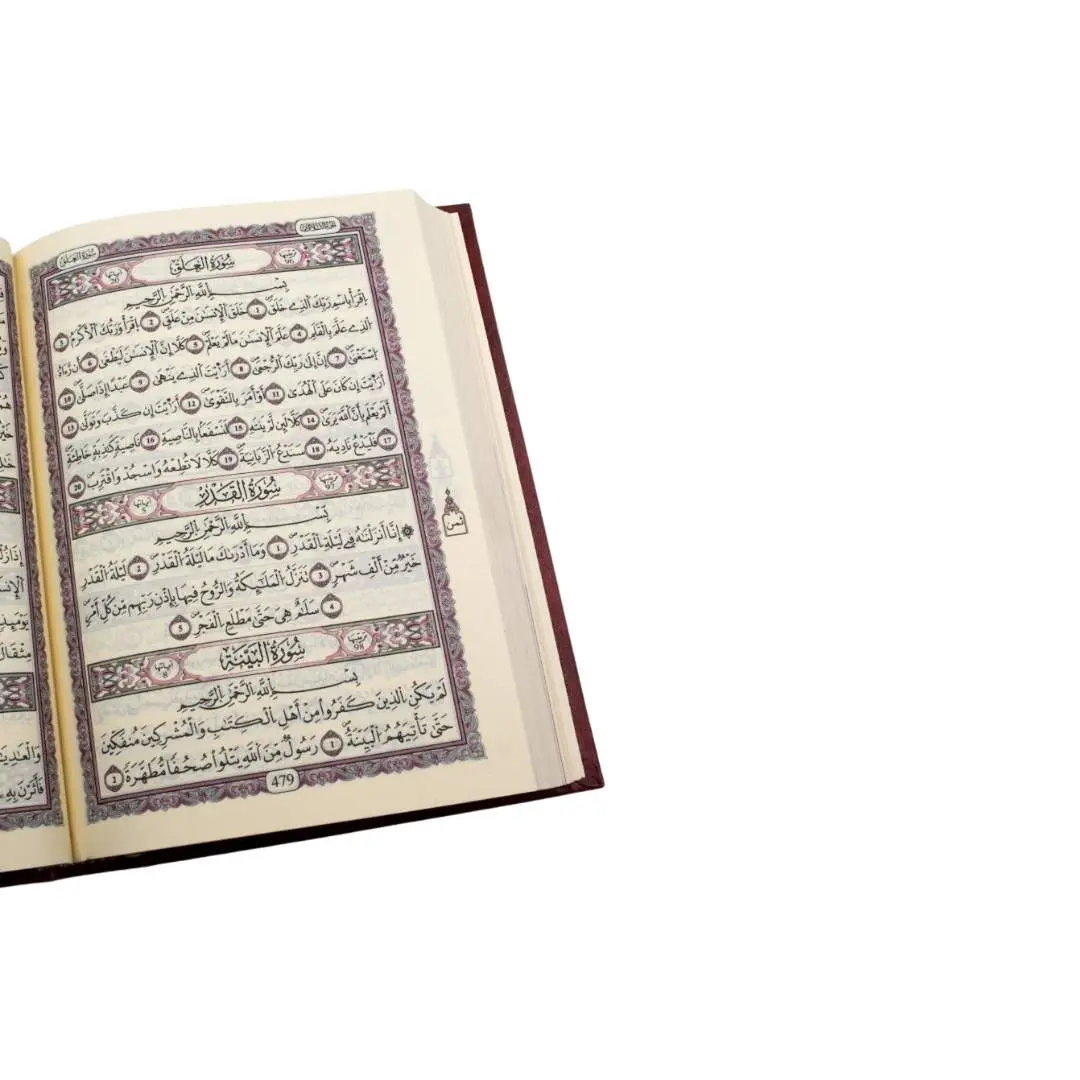 سُورَةُ العَلَقِ
ترتيبها 96 سُورَةُ العَلَقِ آياتها 20
بِسْمِ اللَّهِ الرَّحْمَنِ الرَّحِيمِ
اِقْرَأْ بِاسْمِ رَبِّكَ الَّذِے خَلَقَ 1 خَلَقَ الْإِنسَٰنَ مِنْ عَلَقٍ 2 اِقْرَأْ وَرَبُّكَ الْأَكْرَمُ 3
الَّذِے عَلَّمَ بِالْقَلَمِ 4 عَلَّمَ الْإِنسَٰنَ مَا لَمْ يَعْلَمْ 5 كَلَّا إِنَّ الْإِنسَٰنَ لَيَطْغَىٰ 6 أَن رَّءَاهُ
اُسْتَغْنَىٰ 7 إِنَّ إِلَىٰ رَبِّكَ الرُّجْعَىٰ 8 أَرَٰيْتَ الَّذِے يَنْهَىٰ 9 عَبْدًا إِذَا صَلَّىٰ 10
أَرَٰيْتَ إِن كَانَ عَلَى الْهُدَىٰ 11 أَوْ أَمَرَ بِالتَّقْوَىٰ 12 أَرَٰيْتَ إِن كَذَّبَ وَتَوَلَّىٰ 13
أَلَمْ يَعْلَم بِأَنَّ اللَّهَ يَرَىٰ 14 كَلَّا لَئِن لَّمْ يَنتَهِ 15 لَنَسْفَعًا بِالنَّاصِيَةِ 16 نَاصِيَةٍ كَٰذِبَةٍ خَاطِئَةٍ
17 فَلْيَدْعُ نَادِيَهُ 18 سَنَدْعُ الزَّبَانِيَةَ 19 كَلَّا لَا تُطِعْهُ وَاسْجُدْ وَاقْتَرِب 20
ترتيبها 97 سُورَةُ القَدْرِ آياتها 5
بِسْمِ اللَّهِ الرَّحْمَنِ الرَّحِيمِ
إِنَّا أَنزَلْنَٰهُ فِے لَيْلَةِ الْقَدْرِ 1 وَمَا أَدْرَىٰكَ مَا لَيْلَةُ الْقَدْرِ 2 لَيْلَةُ الْقَدْرِ
خَيْرٌ مِّنْ أَلْفِ شَهْرٍ 3 تَنَزَّلُ الْمَلَٰئِكَةُ وَالرُّوحُ فِيهَا بِإِذْنِ رَبِّهِم مِّن كُلِّ أَمْرٍ
4 سَلَٰمٌ هِيَ حَتَّىٰ مَطْلَعِ الْفَجْرِ 5
ثمن
ترتيبها 98 سُورَةُ البَيِّنَةِ آياتها 8
بِسْمِ اللَّهِ الرَّحْمَنِ الرَّحِيمِ
لَمْ يَكُنِ الَّذِينَ كَفَرُوا مِنْ أَهْلِ الْكِتَٰبِ وَالْمُشْرِكِينَ مُنفَكِّينَ
حَتَّىٰ تَأْتِيَهُمُ الْبَيِّنَةُ 1 رَسُولٌ مِّنَ اللَّهِ يَتْلُوا صُحُفًا مُّطَهَّرَةً 2
479